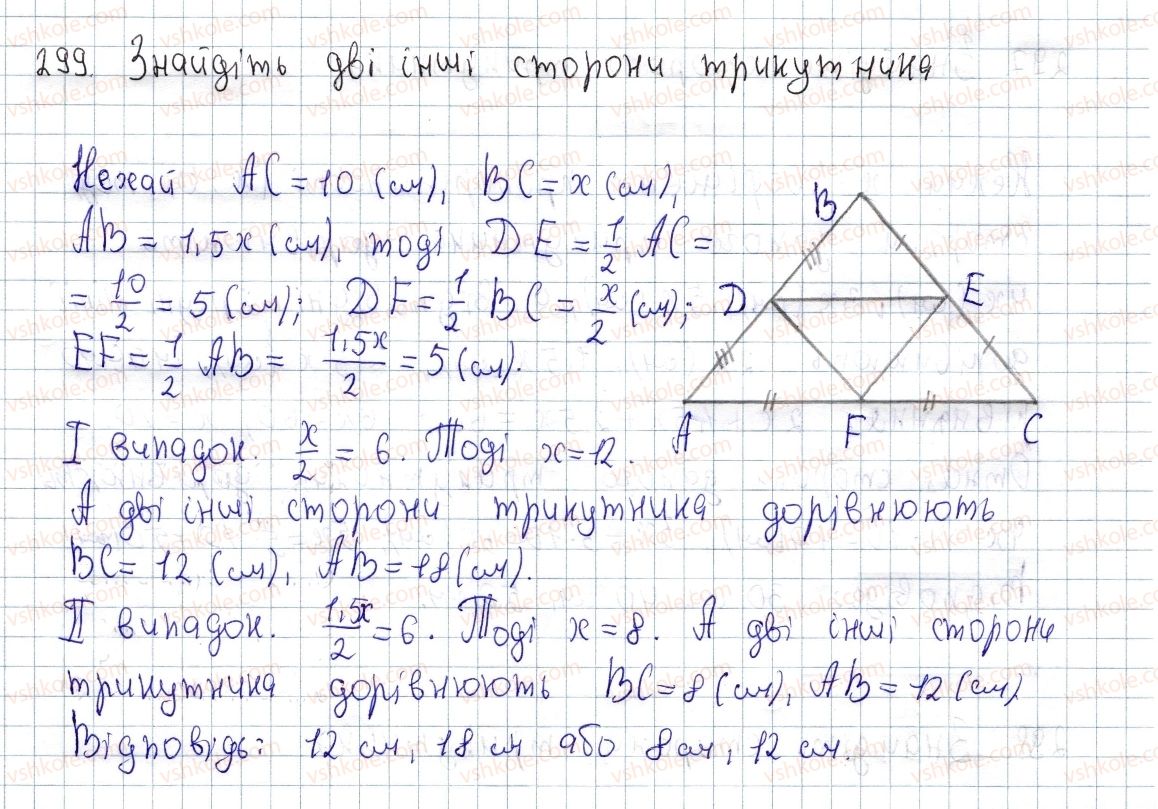 299. Знайдіть дві інші сторони трикутника
Нехай AC = 10 (см), BC = x (см),
AB = 1,5x (см), тоді DE = 1/2 AC =
= 10/2 = 5 (см); DF = 1/2 BC = x/2 (см);
EF = 1/2 AB = 1,5x/2 = 5 (см).
B
D
E
A
F
C
I випадок. x/2 = 6. Тоді x = 12.
А дві інші сторони трикутника дорівнюють
BC = 12 (см), AB = 18 (см).
II випадок. 1,5x/2 = 6. Тоді x = 8. А дві інші сторони
трикутника дорівнюють BC = 8 (см), AB = 12 (см)
Відповідь: 12 см, 18 см або 8 см, 12 см.